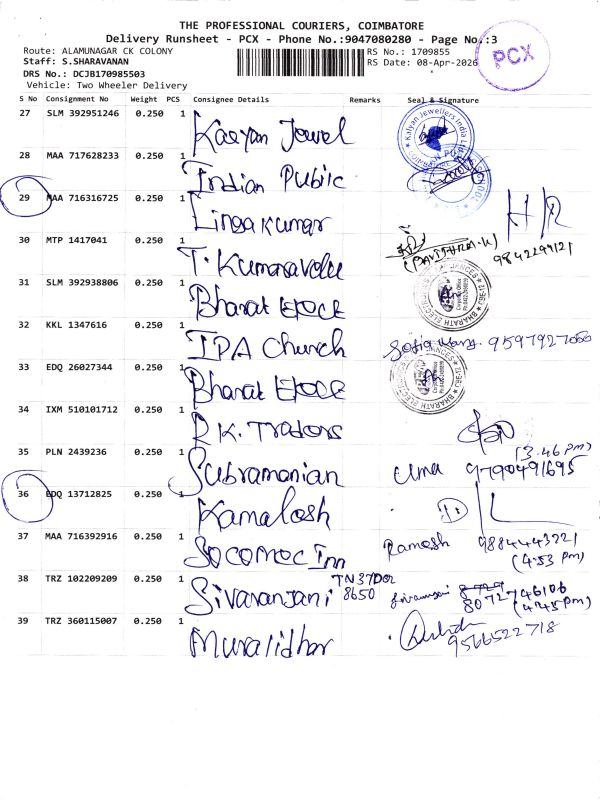 THE PROFESSIONAL COURIERS, COIMBATORE
Delivery Runsheet - PCX - Phone No.:9047080280 - Page No.:3
PCX
Route: ALAMUNAGAR CK COLONY
RS No.: 1709855
Staff: S.SHARAVANAN
RS Date: 08-Apr-2026
DRS No.: DCJB170985503
Vehicle: Two Wheeler Delivery
S No Consignment No Weight PCS Consignee Details Remarks Seal & Signature
27 SLM 392951246 0.250 1 Kalyan Jewel
Kalyan Jewellers India
28 MAA 717628233 0.250 1 Indian Public
29 MAA 716316725 0.250 1 Lingakumar
30 MTP 1417041 0.250 1 T. Kumaravelu
9842299121
31 SLM 392938806 0.250 1 Bharat
BHARATH ELECTRONICS APPLIANCES
32 KKL 1347616 0.250 1 IPA Church
33 EDQ 26027344 0.250 1 Bharat
BHARATH ELECTRONICS APPLIANCES
34 IXM 510101712 0.250 1 R.K. Traders
(3.46 pm)
35 PLN 2439236 0.250 1 Subramanian Uma 9790491695
36 EDQ 13712825 0.250 1 Kamalesh
37 MAA 716392916 0.250 1 Socomec Inn Ramesh 9884443221
(4:53 pm)
38 TRZ 102209209 0.250 1 Sivaranjani TN37DO2
8650 8072746106
(4:45 pm)
39 TRZ 360115007 0.250 1 Muralidhar
9566522718